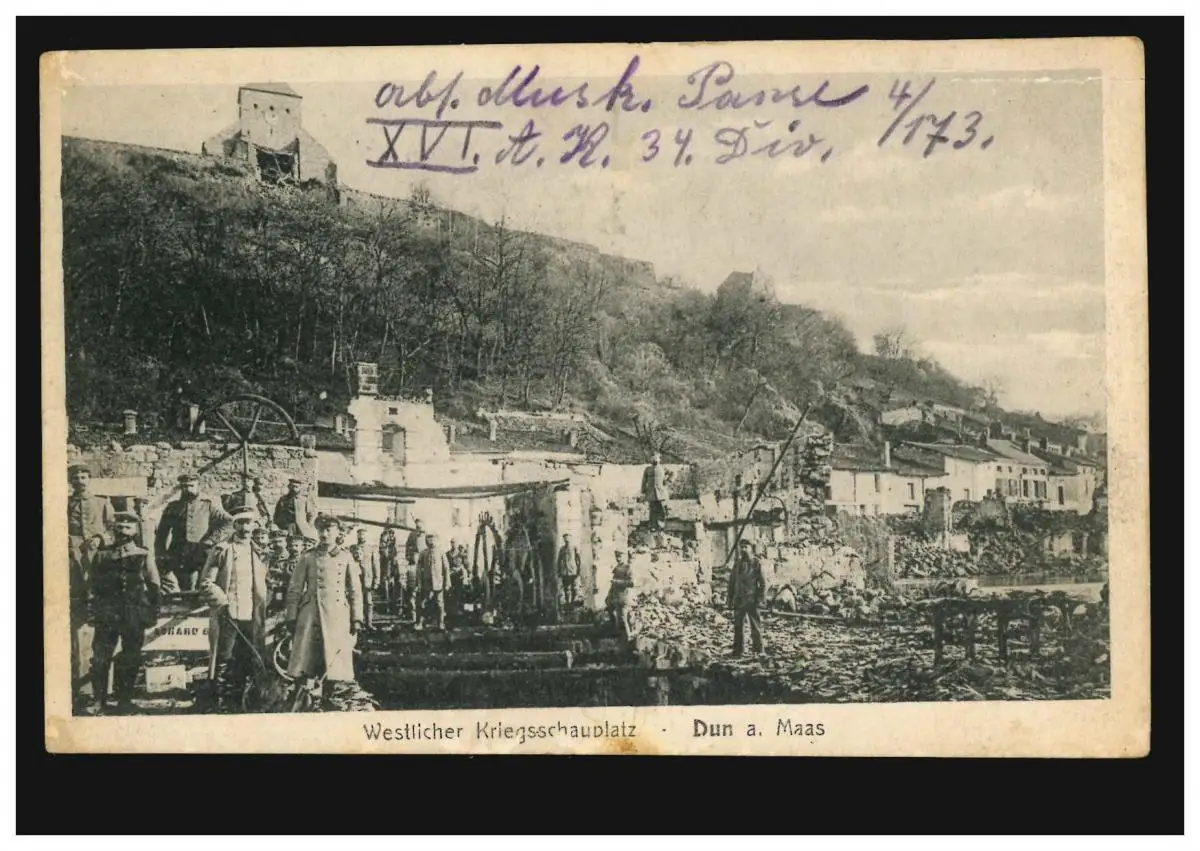 abs. Musk. Panse 4/173.
XVI. A. K. 34. Div.
Westlicher Kriegsschauplatz - Dun a. Maas